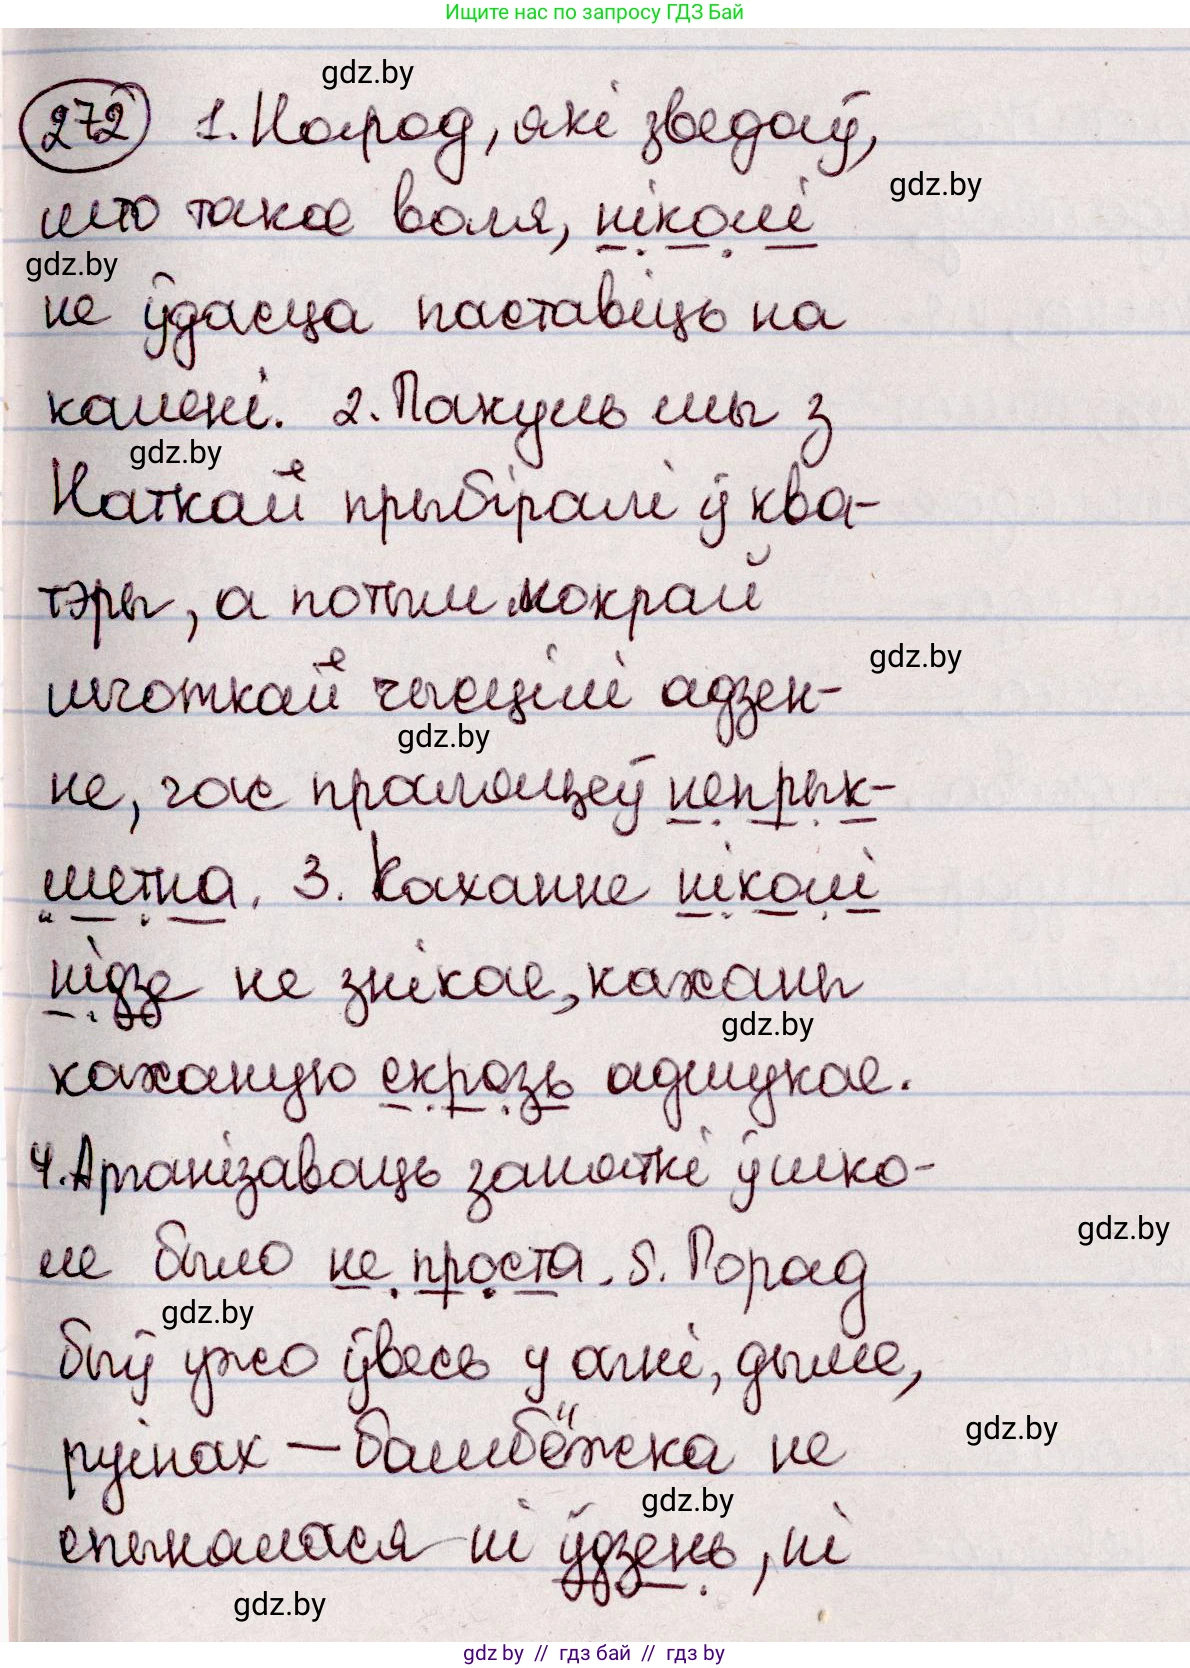 Ищите нас по запросу ГДЗ Бай
gdz.by
272 1. Народ, які зведаў,
gdz.by
што такое воля, ніколі
gdz.by
не ўдасца паставіць на
калені. 2. Пакуль мы з
gdz.by
Наткай прыбіралі ў ква-
тэры, а потым мокрай
gdz.by
шчоткай чысцілі адзен-
gdz.by
не, час праляцеў непрык-
метна. 3. Каханне ніколі
нідзе не знікае, каханы
gdz.by
каханую скрозь адшукае.
4. Арганізаваць заняткі ў шко-
gdz.by
ле было не проста. 5. Горад
gdz.by
быў ужо ўвесь у агні, дыме,
gdz.by
руінах — бамбёжка не
gdz.by
спынялася ні ўдзень, ні
gdz.by
gdz by // гдз бай // гдз by